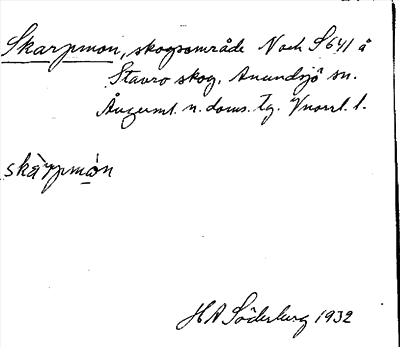 Skarpmon, skogsområde N och S 641 å
Stavro skog. Anundsjö sn.
Ångerml. n. doms. tg. Vnorrl. l.
skàrpmón
H A Söderberg 1932